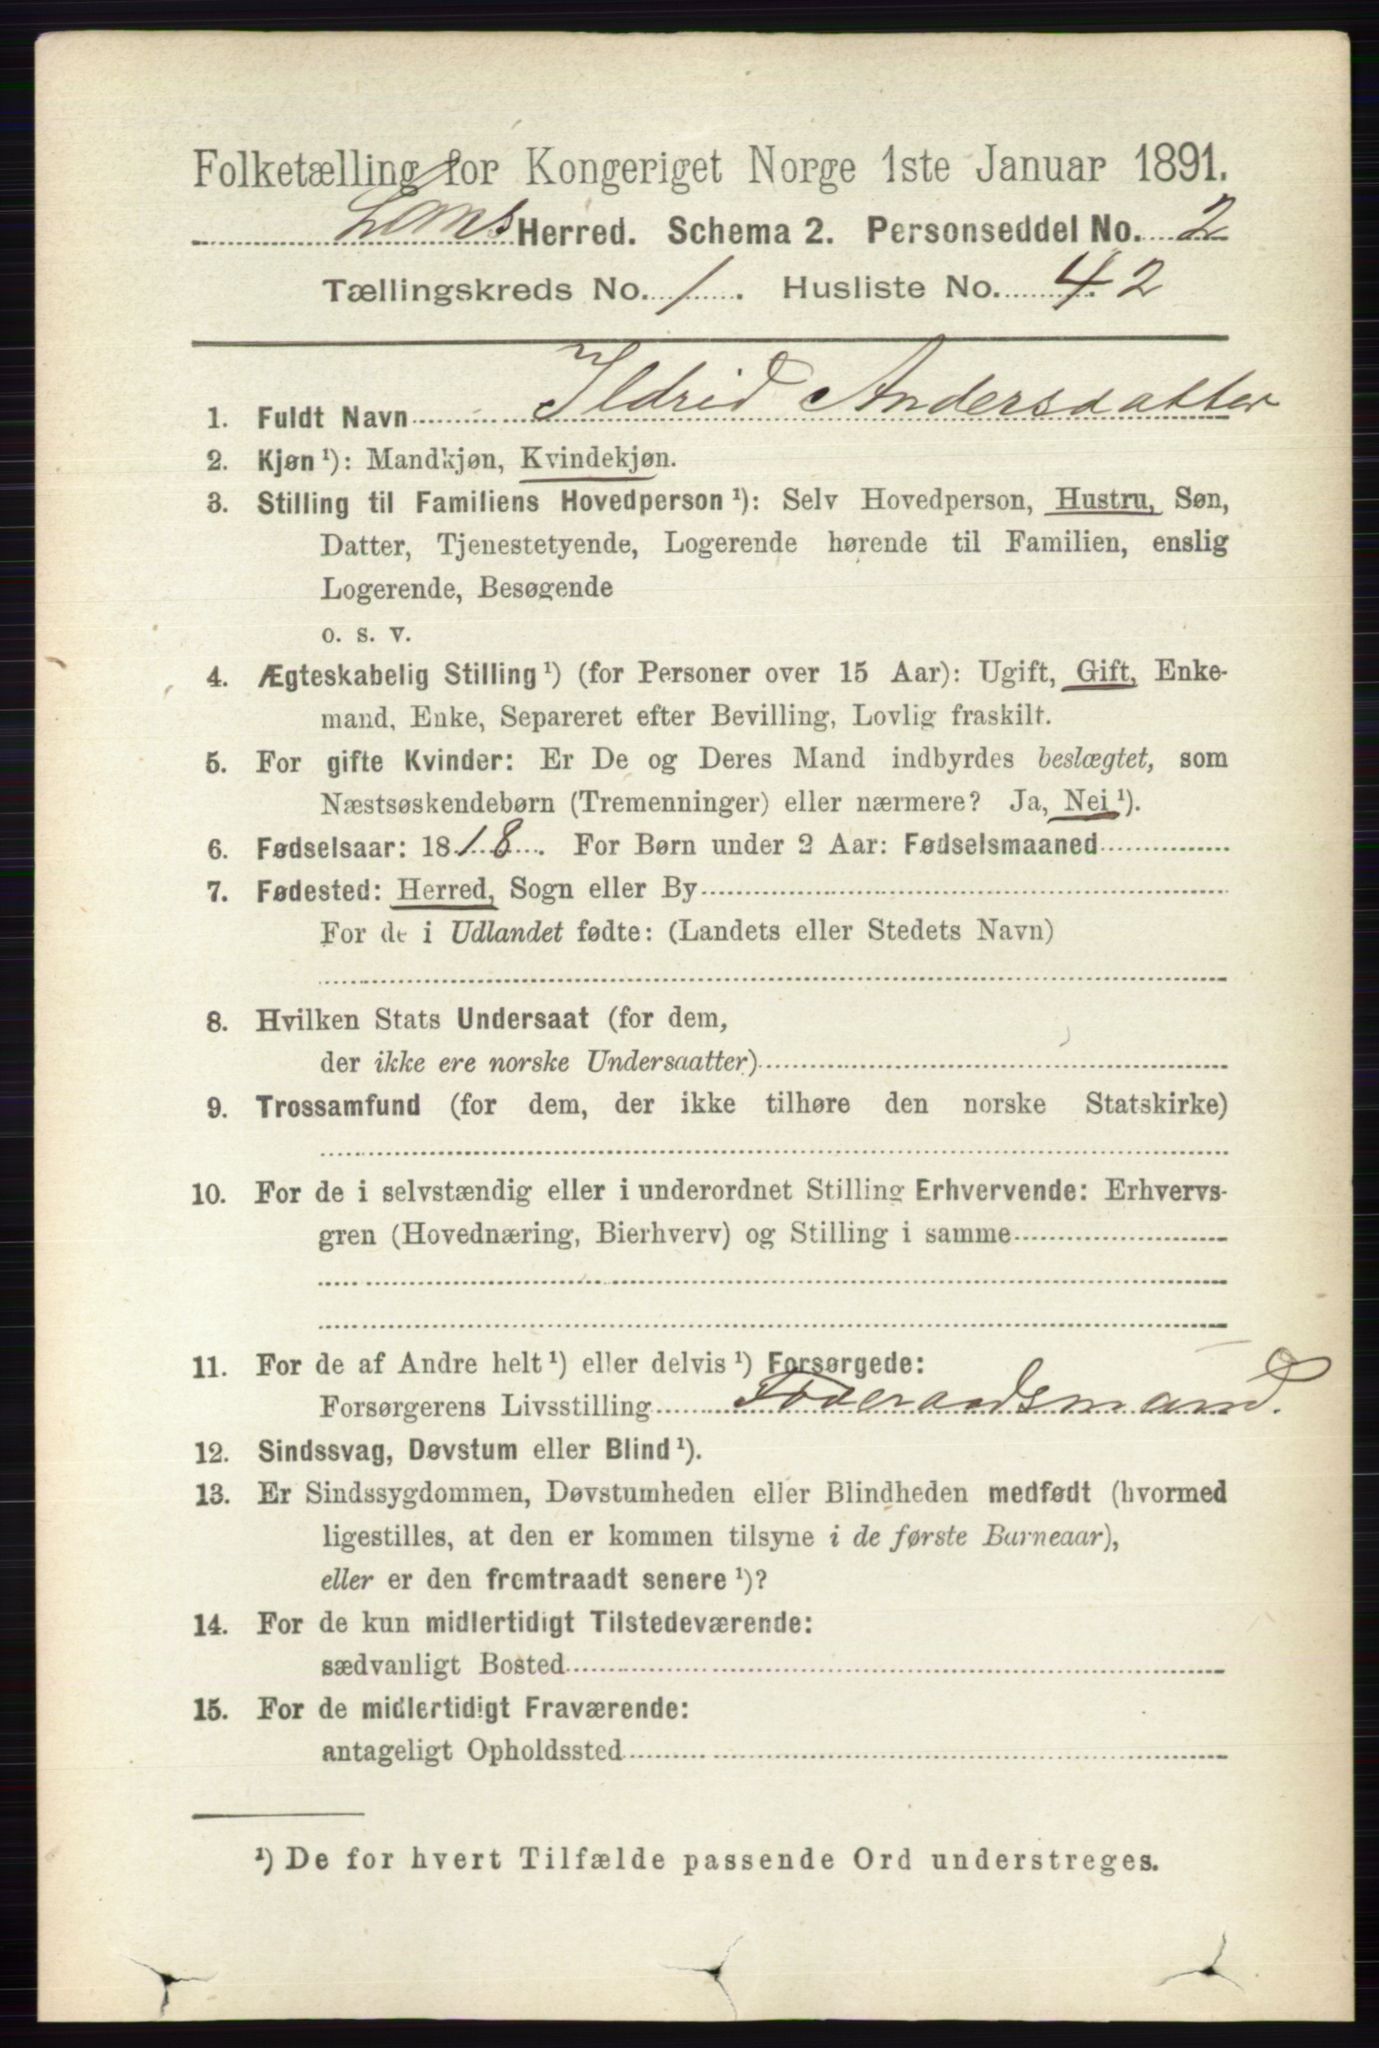 Folketælling for Kongeriget Norge 1ste Januar 1891.
Loms Herred. Schema 2. Personseddel No. 2
Tællingskreds No. 1. Husliste No. 42
1. Fuldt Navn Ildrid Andersdatter
2. Kjøn ¹): Mandkjøn, Kvindekjøn.
3. Stilling til Familiens Hovedperson ¹): Selv Hovedperson, Hustru, Søn,
Datter, Tjenestetyende, Logerende hørende til Familien, enslig
Logerende, Besøgende
o. s. v.
4. Ægteskabelig Stilling ¹) (for Personer over 15 Aar): Ugift, Gift, Enke-
mand, Enke, Separeret efter Bevilling, Lovlig fraskilt.
5. For gifte Kvinder: Er De og Deres Mand indbyrdes beslægtet, som
Næstsøskendebørn (Tremenninger) eller nærmere? Ja, Nei ¹).
6. Fødselsaar: 1818. For Børn under 2 Aar: Fødselsmaaned
7. Fødested: Herred, Sogn eller By
For de i Udlandet fødte: (Landets eller Stedets Navn)
8. Hvilken Stats Undersaat (for dem,
der ikke ere norske Undersaatter)
9. Trossamfund (for dem, der ikke tilhøre den norske Statskirke)
10. For de i selvstændig eller i underordnet Stilling Erhvervende: Erhvervs-
gren (Hovednæring, Bierhverv) og Stilling i samme
11. For de af Andre helt ¹) eller delvis ¹) Forsørgede:
Forsørgerens Livsstilling Föderaadsmand.
12. Sindssvag, Døvstum eller Blind ¹).
13. Er Sindssygdommen, Døvstumheden eller Blindheden medfødt (hvormed
ligestilles, at den er kommen tilsyne i de første Barneaar),
eller er den fremtraadt senere ¹)?
14. For de kun midlertidigt Tilstedeværende:
sædvanligt Bosted
15. For de midlertidigt Fraværende:
antageligt Opholdssted
¹) De for hvert Tilfælde passende Ord understreges.